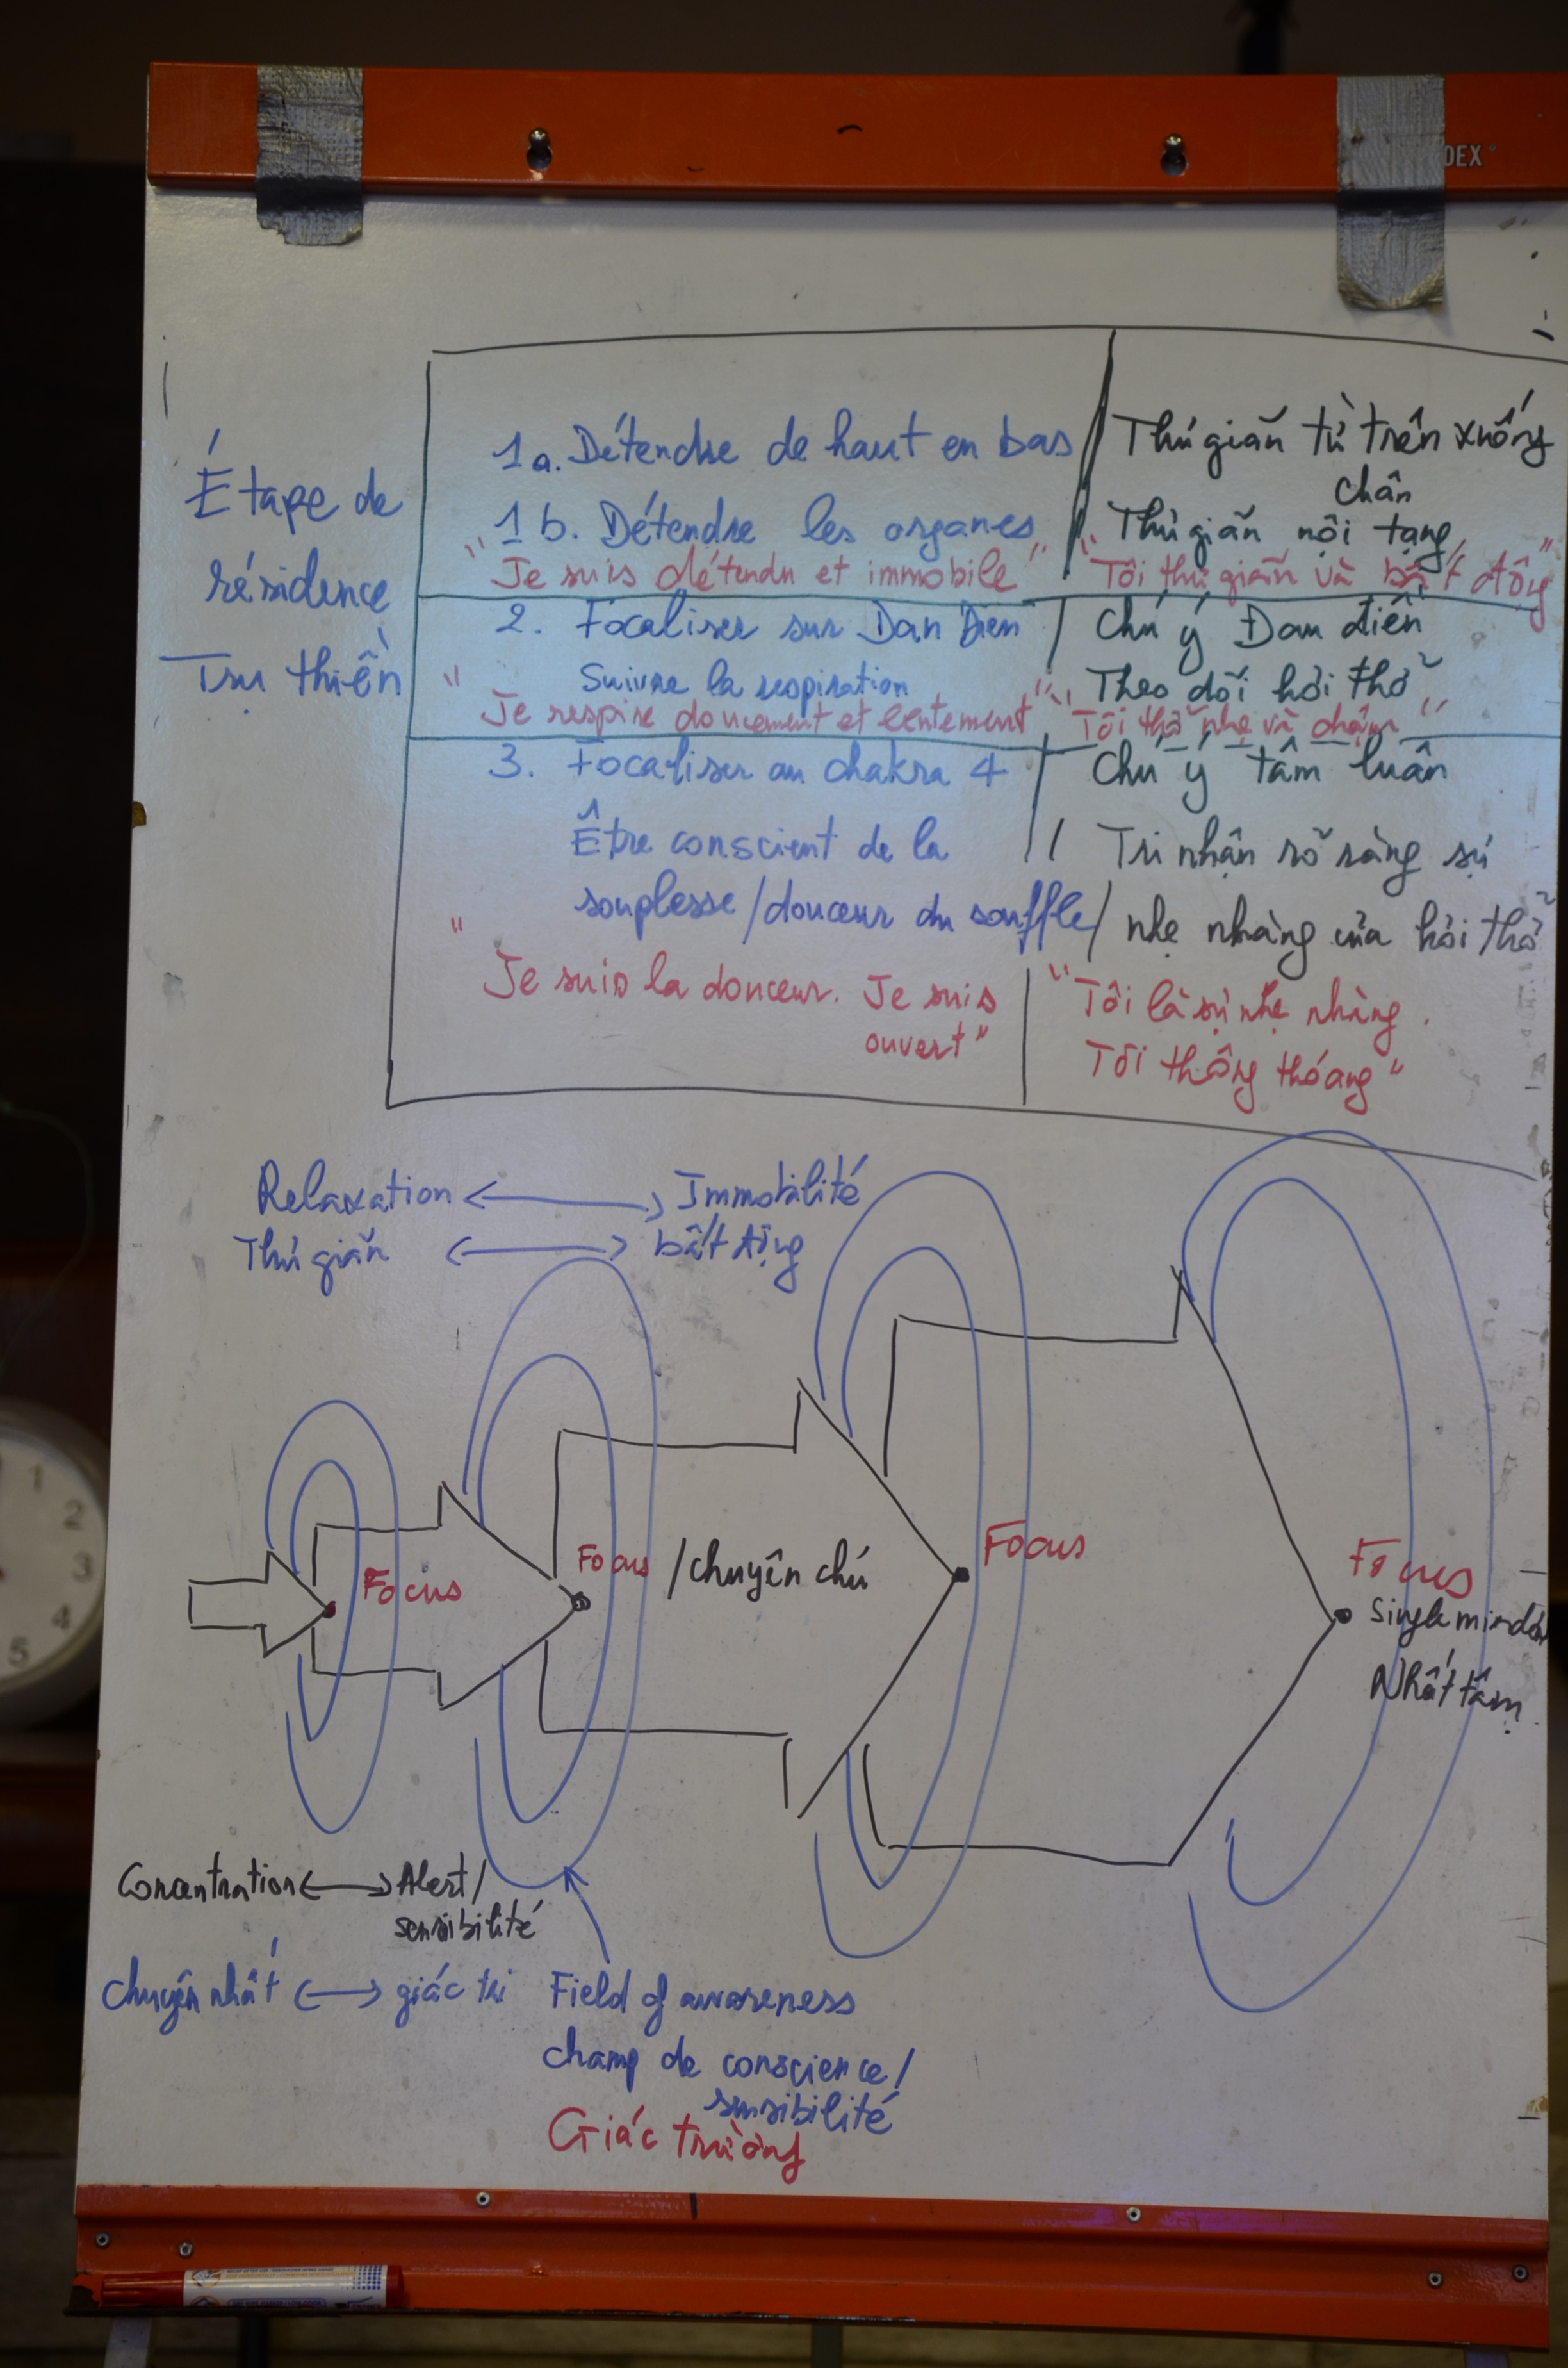 DEX
Étape de
résidence
Trụ thiền
1a. Détendre de haut en bas
1b. Détendre les organes
"Je suis détendu et immobile"
Thư giãn từ trên xuống
chân
Thư giãn nội tạng
"Tôi thư giãn và bất động"
2. Focaliser sur Dan Dien
Suivre la respiration
"Je respire doucement et lentement"
Chú ý Đan điền
Theo dõi hơi thở
"Tôi thở nhẹ và chậm"
3. Focaliser au chakra 4
Être conscient de la
souplesse/douceur du souffle
"Je suis la douceur. Je suis
ouvert"
Chú ý tâm luân
Tri nhận rõ ràng sự
nhẹ nhàng của hơi thở
"Tôi là sự nhẹ nhàng.
Tôi thông thóang"
Relaxation <-> Immobilité
Thư giãn <-> bất động
Focus
Focus /chuyên chú
Focus
Focus
Nhất tâm
Concentration <-> Alert/
sensibilité
chuyên nhất <-> giác tri
Field of awareness
champ de conscience/
sensibilité
Giác trường
1
2
3
4
5